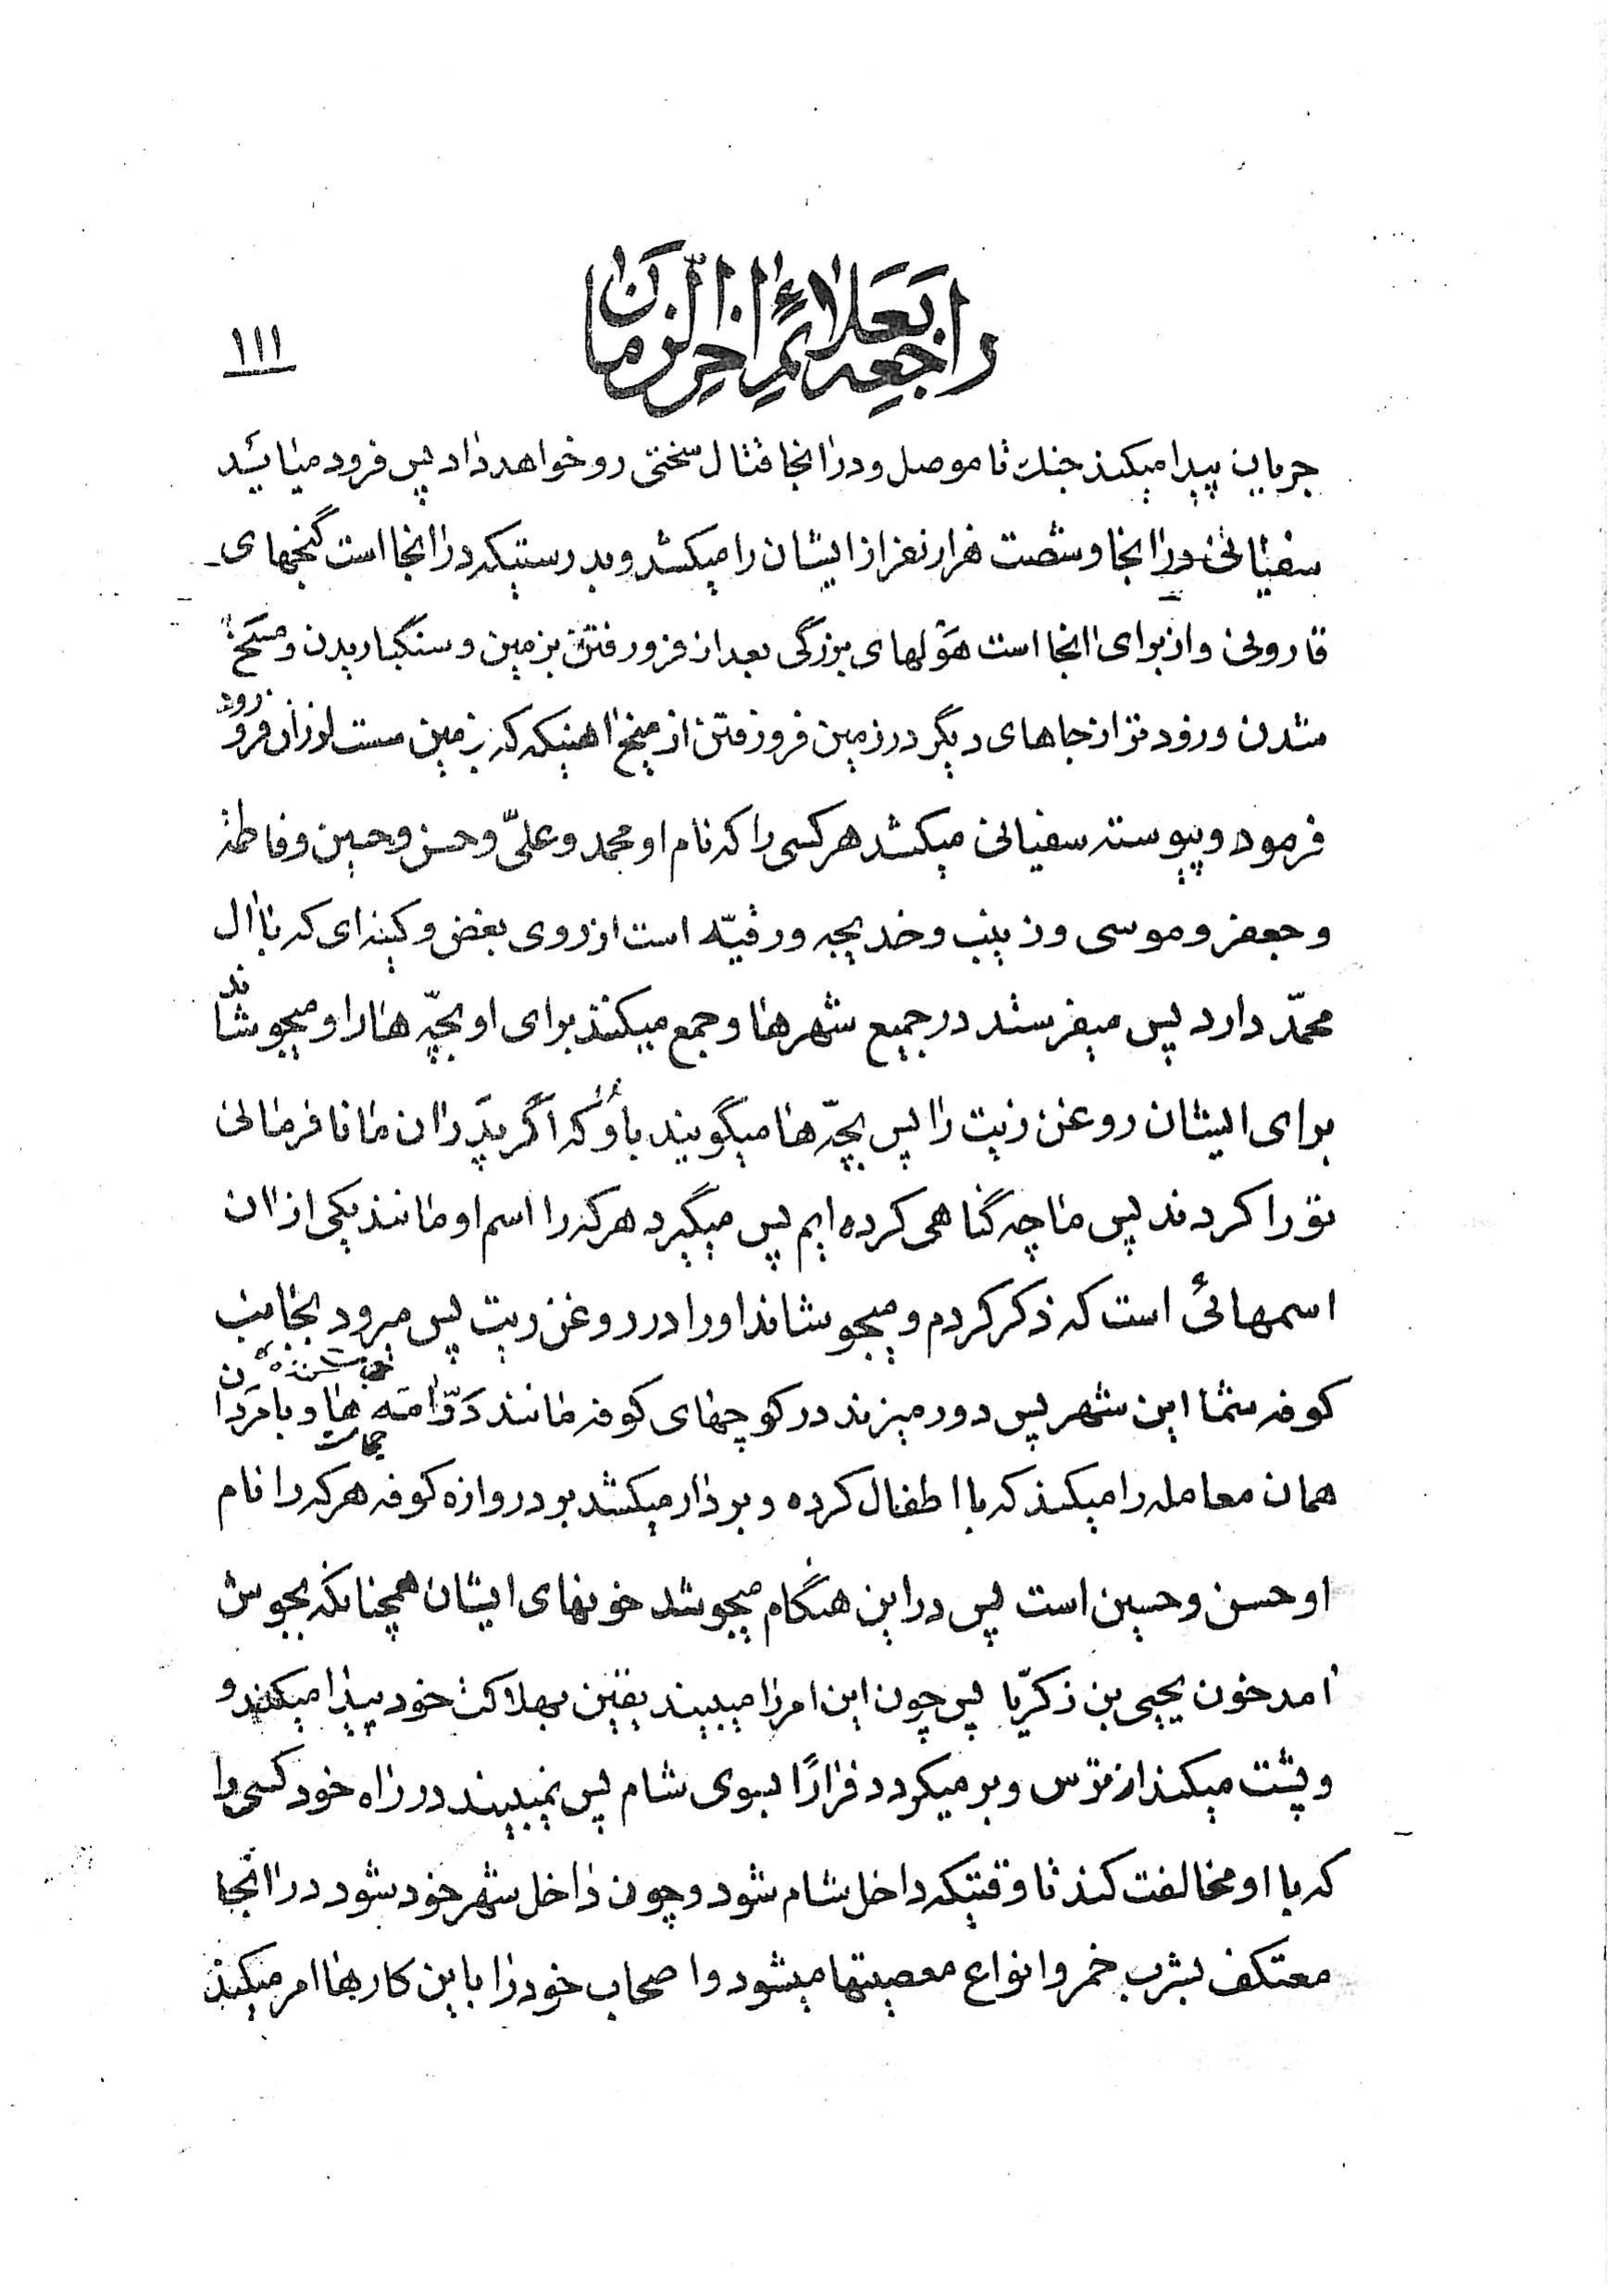 راجعه بعلائم آخر الزمان
۱۱۱
جریان پیدا میکند جنك تا موصل و در آنجا قتال سختی رو خواهد داد پس فرود میآئید
سفیانی در آنجا و شصت هزار نفر از ایشان را میکشد و بدرستیکه در آنجا است گنجهای
قارونی و از برای آنجا است هَوْلهای بزرگی بعد از فرو رفتن بزمین و سنگباریدن و مسخ
شدن و زودتر از جاهای دیگر در زمین فرو رفتن از میخ آهنیکه که بزمین سست لرزان فرو رود
فرمود و پیوسته سفیانی میکشد هر کسی را که نام او محمد و علیّ و حسن و حسین و فاطمه
و جعفر و موسی و زینب و خدیجه و رقیّه است از روی بغض و کینه‌ای که با آل
محمّد دارد پس میفرستد در جمیع شهرها و جمع میکنند برای او بچّه‌ها را و میجوشاند
برای ایشان روغن زیت را پس بچّه‌ها میگویند باو که اگر پدران ما نافرمانی
تو را کردند پس ما چه گناهی کرده ایم پس میگیرد هر که را اسم او مانند یکی از آن
اسمهائی است که ذکر کردم و میجوشاند او را در روغن زیت پس میرود بجانب
کوفه شما این شهر پس دور میزند در کوچهای کوفه مانند دَوّامَه ها و با مردان
همان معامله را میکند که با اطفال کرده و بر دار میکشد بر دروازه کوفه هر که را نام
او حسن و حسین است پس در این هنگام میجوشد خونهای ایشان همچنانکه بجوش
آمد خون یحیی بن زکریّا پس چون این امر را میبیند یقین بهلاکت خود پیدا میکند و
و پشت میکند از ترس و بر میگردد فرارًا بسوی شام پس نمیبیند در راه خود کسی را
که با او مخالفت کند تا وقتیکه داخل شام شود و چون داخل شهر خود شود در آنجا
معتکف بشرب خمر و انواع معصیتها میشود و اصحاب خود را باین کارها امر میکند